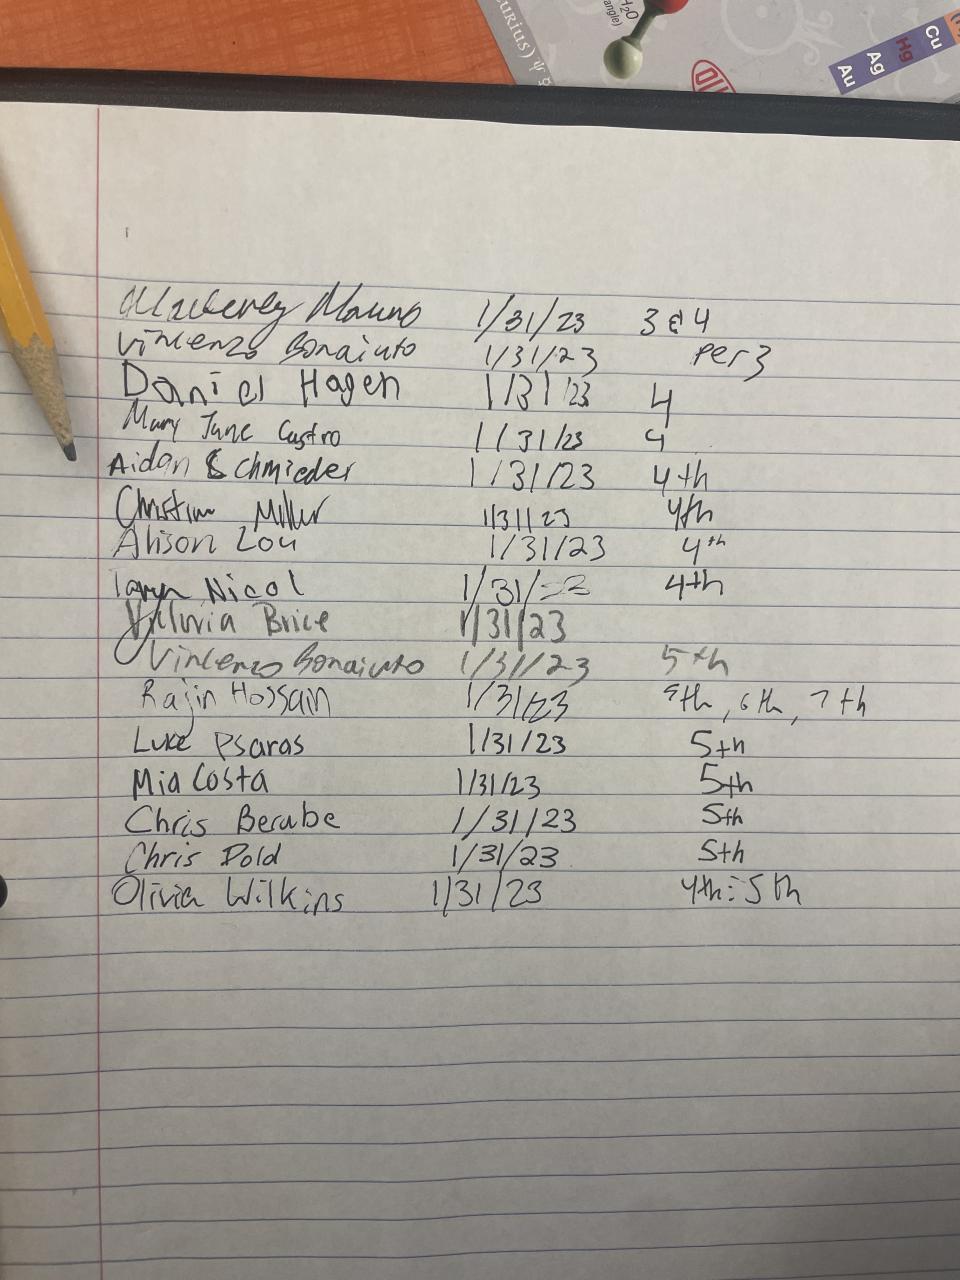 H₂O
angle)
urius)
Cu
Hg
Ag
Au
Mauno 1/31/23 3 & 4
Vincenzo Bonaiuto 1/31/23 Per 3
Daniel Hagen 1/31/23 4
Mary Jane Castro 1/31/23 4
Aidan Schmieder 1/31/23 4th
Christian Miller 1/31/23 4th
Alison Lou 1/31/23 4th
Taryn Nicol 1/31/23 4th
Brice 1/31/23
Vincenzo Bonaiuto 1/31/23 5th
Rajin Hossain 1/31/23 5th, 6th, 7th
Luke Psaras 1/31/23 5th
Mia Costa 1/31/23 5th
Chris Berube 1/31/23 5th
Chris Dold 1/31/23 5th
Olivia Wilkins 1/31/23 4th : 5th